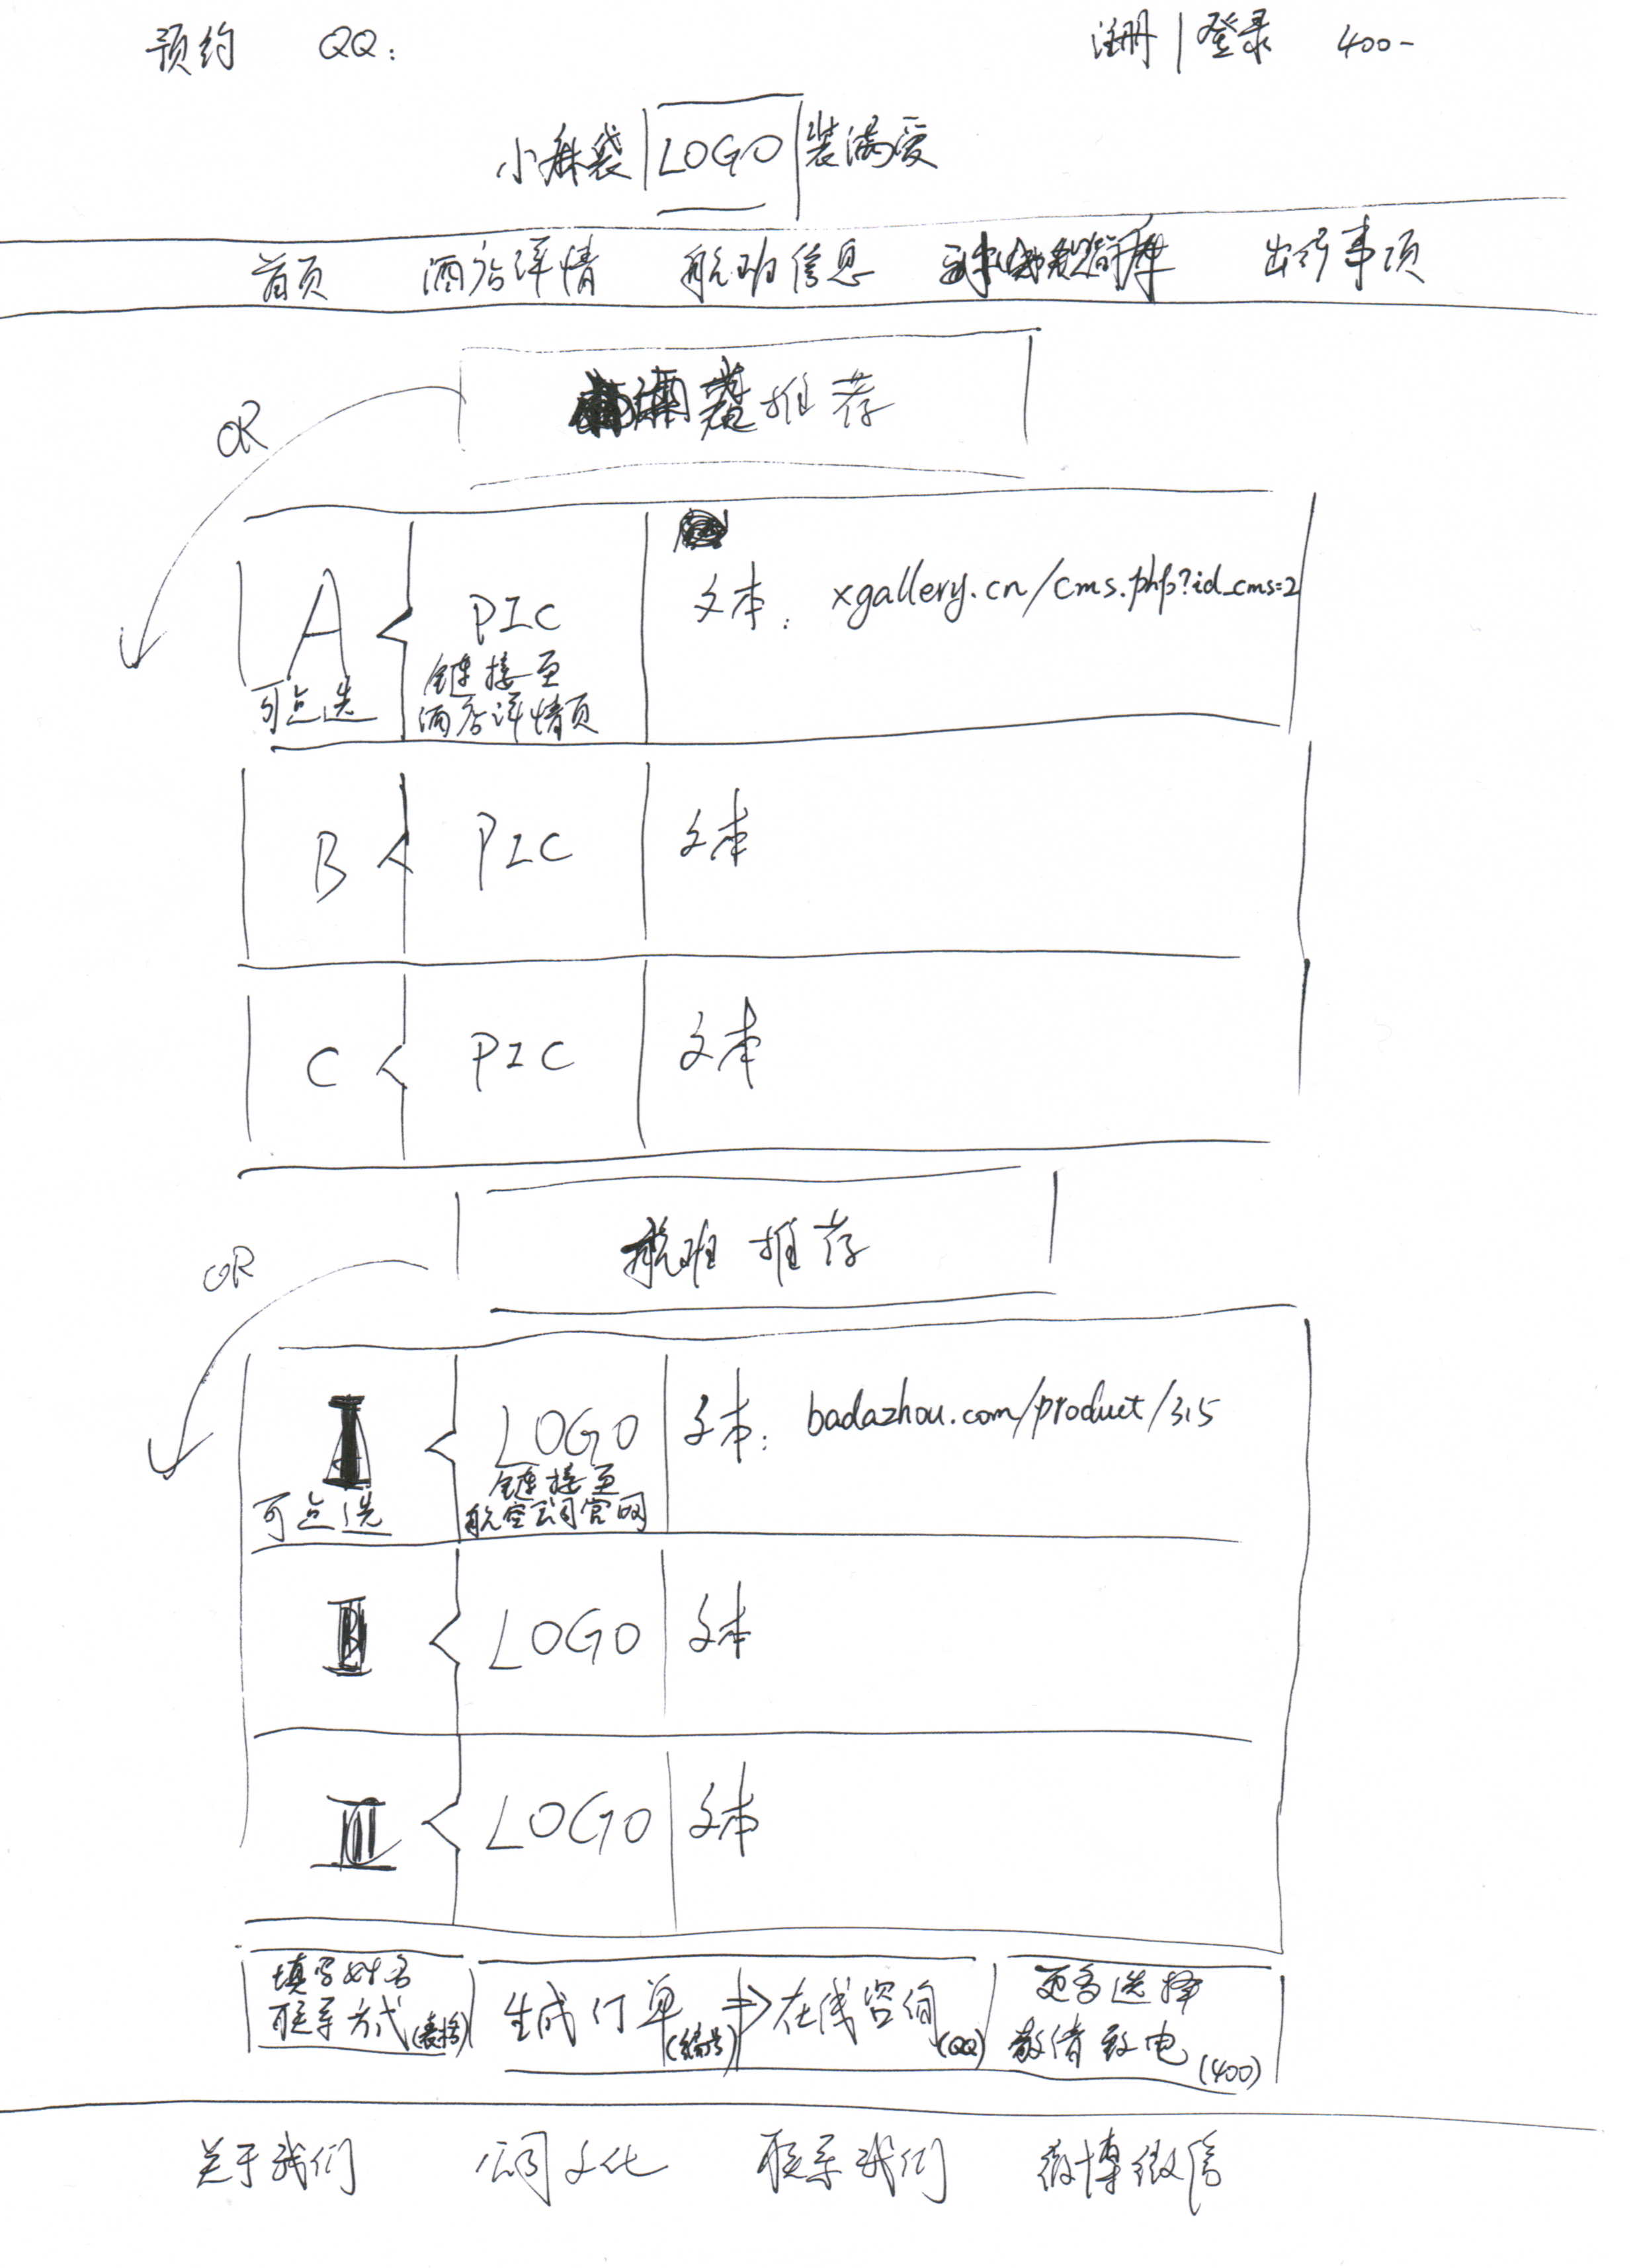 预约 QQ: 注册 | 登录 400-
小麻袋 LOGO 装满爱
首页 酒店详情 航班信息 出行事项
OR
推荐
A
可点选
PIC
链接至
酒店详情页
文本: xgallery.cn/cms.php?id_cms=2
B PIC 文本
C PIC 文本
OR
航班推荐
I
可点选
LOGO
链接至
航空公司官网
文本: badazhou.com/product/315
II LOGO 文本
III LOGO 文本
填写姓名
联系方式(表格)
生成订单(编号)
在线咨询(QQ)
更多选择
敬请致电(400)
关于我们 公司文化 联系我们 微博微信